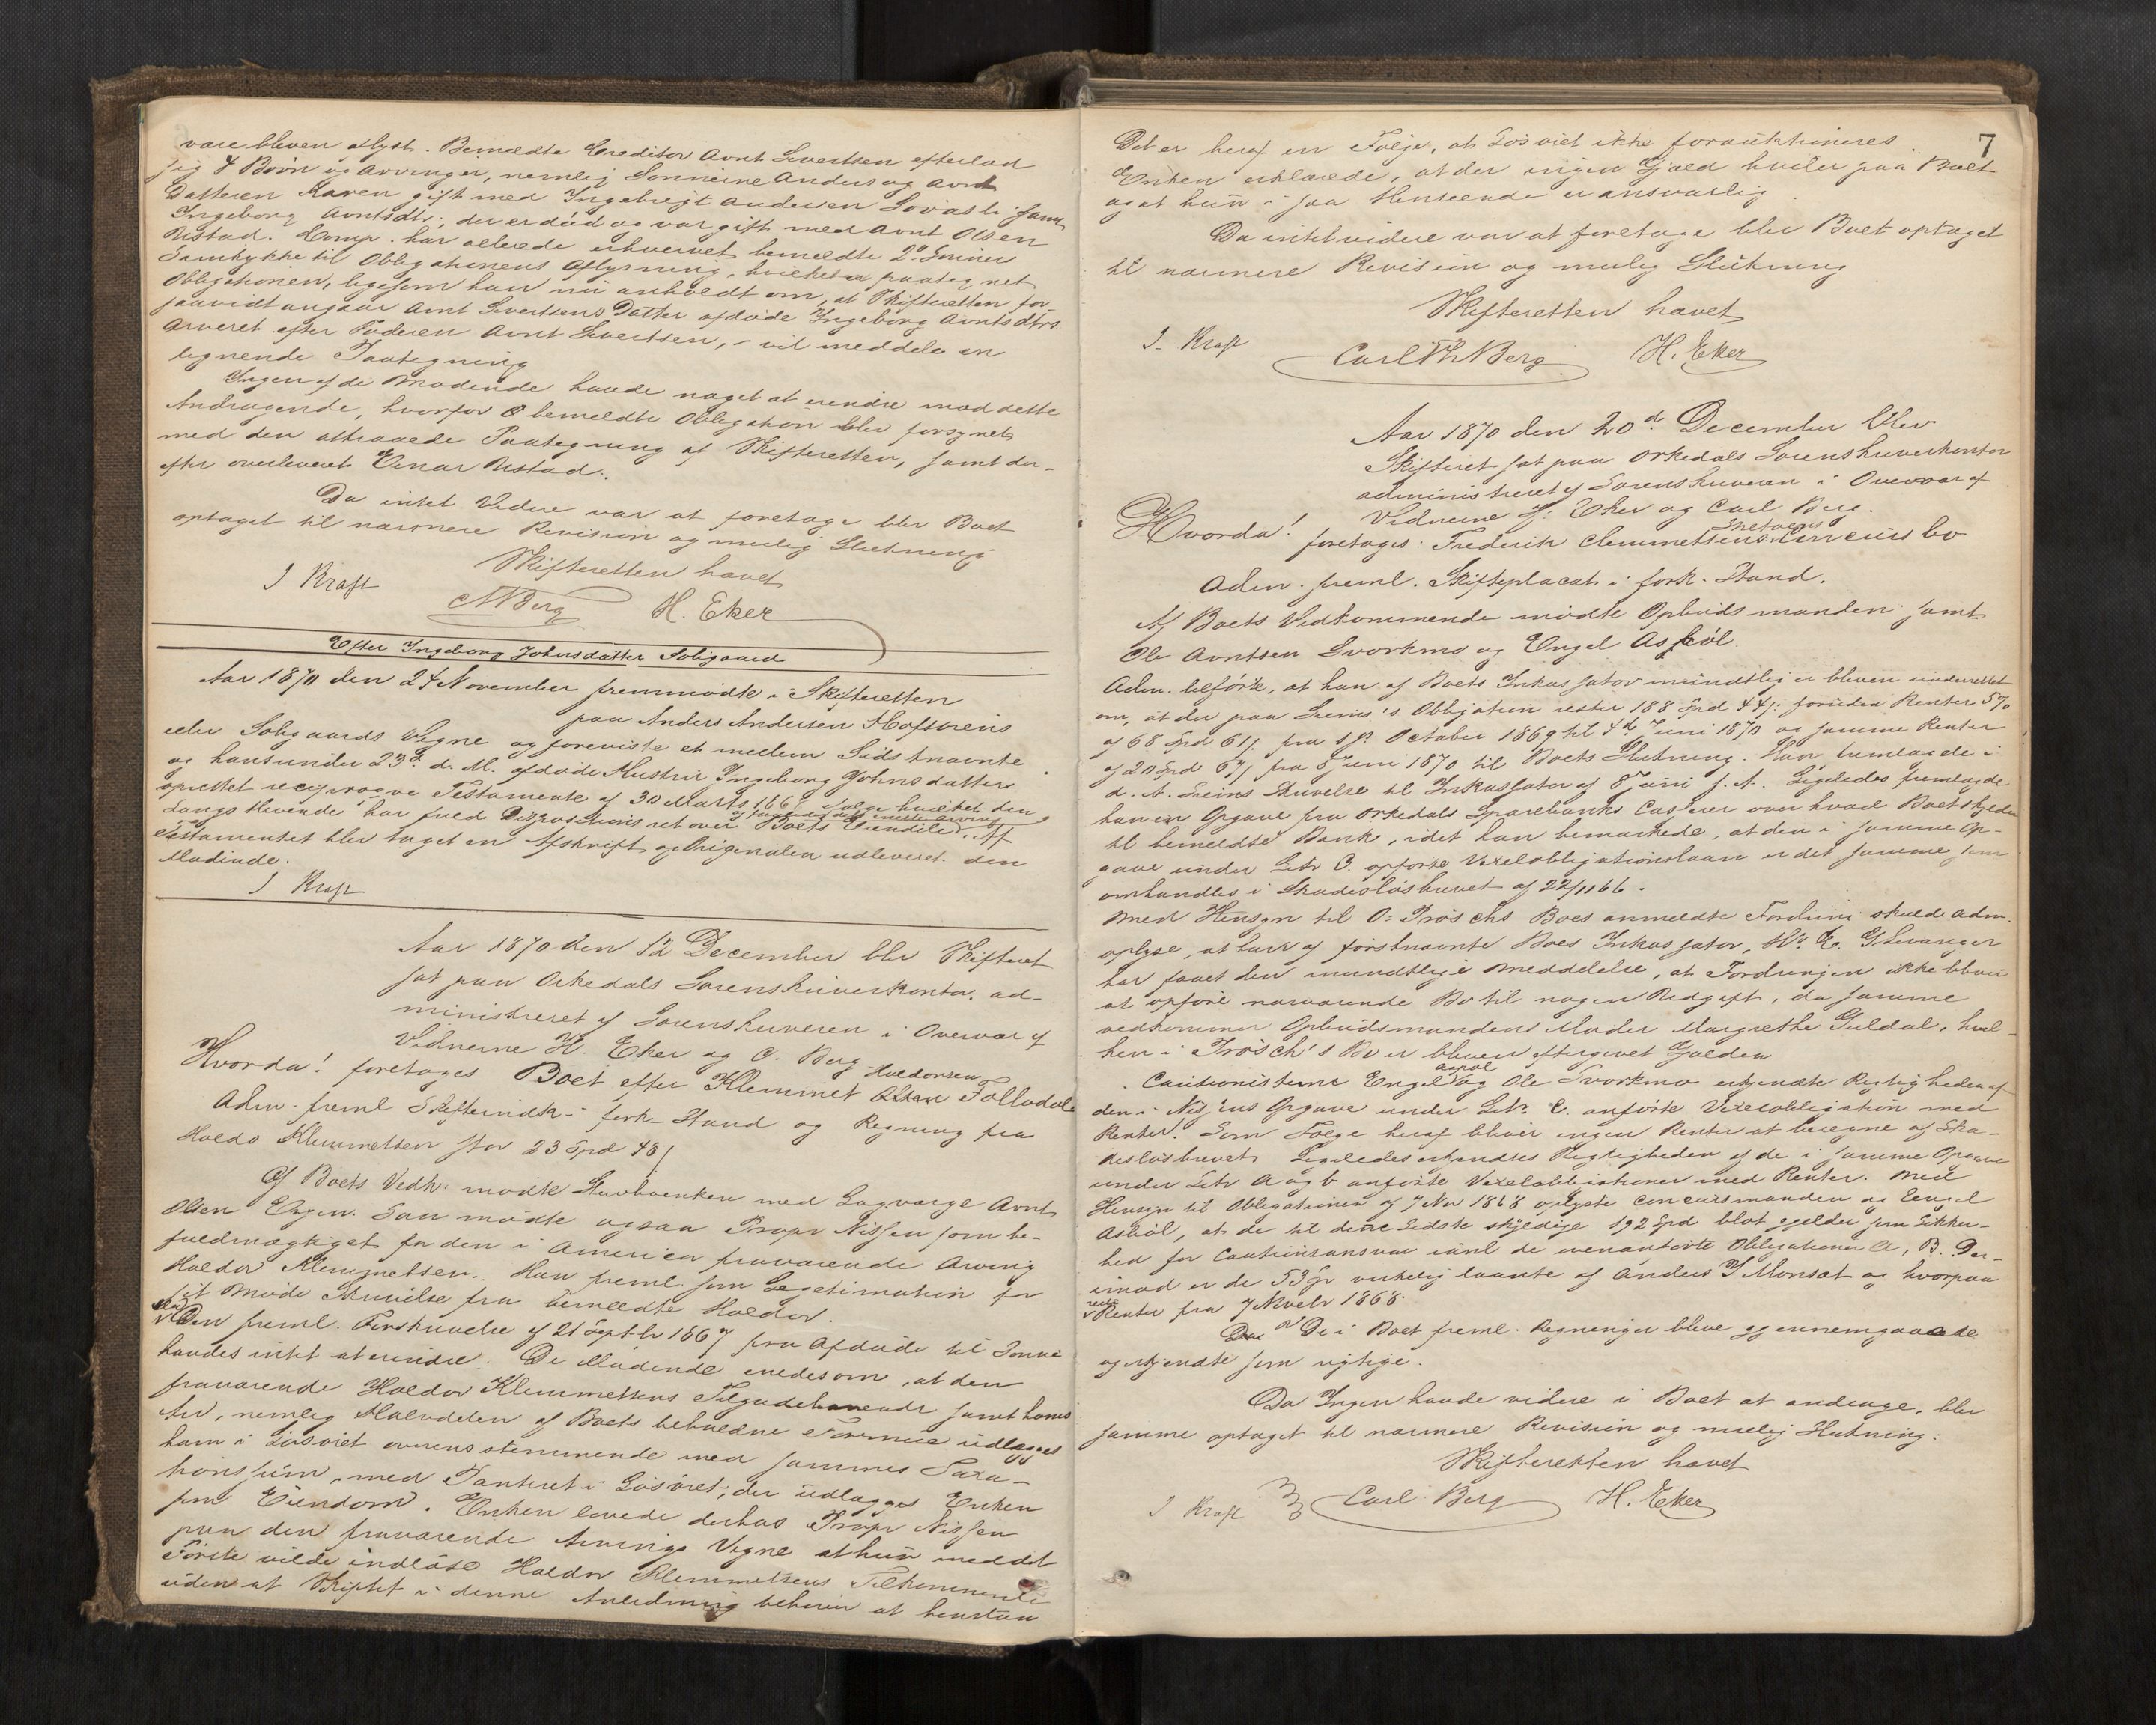 være bleven aflyst. Bemeldte Creditor Arnt Sivertsen efterlod
sig 4 Børn og Arvinger, nemlig Sønnerne Anders og Arnt
Datteren Karen gift med Ingebrigt Andersen Lovasli samt
Ingeborg Arntsdtr; der er død og var gift med Arnt Olsen
Ustad. Comp. har allerede erhvervet bemeldte 2de Sønners
Samtykke til Obligationens Aflysning, hvilket er paategnet
Obligationen, ligesom han nu anholdt om, at Skifteretten for
saavidt angaar Arnt Sivertsens Datter afdøde Ingeborg Arntsdtrs
Arveret efter Faderen Arnt Sivertsen, - vil meddele en
lignende Paategning
Ingen af de Mødende havde noget at erindre mod dette
Andragende, hvorfor bemeldte Obligation blev forsynet
med den attraaede Paategning af Skifteretten, samt der-
efter overleveret Einar Ustad.
Da intet Videre var at foretage blev Boet
optaget til nærmere Revision og muelig Slutning
Skifteretten hævet
J Kraft CThBerg H. Eker
Efter Ingeborg Johnsdatter Soligaard
Aar 1870 den 24 November fremmødte i Skifteretten
paa Anders Andersen Hoftørens
eller Soligaards Vegne og foreviste et mellem Sidstnævnte
og hans under 23de d. M. afdøde Hustru Ingeborg Johnsdatter
oprettet reciproqve Testamente af 30 Marts 1868 ifølge hvilket den
Længstlevende har fuld Dispositionsret over Boets Eiendele. Af
Testamentet blev taget en Afskrift og Originalen udleveret den
Mødende.
J Kraft
Aar 1870 den 12 December blev Skifteret
sat paa Orkedals Sorenskriverkontor, ad-
ministreret af Sorenskriveren i Overvær af
Vidnerne H. Eker og C. Berg
Hvorda! foretoges Boet efter Klemmet Haldorsen Follodal
Adm. freml Skifteindk. i fork. Stand og Regning fra
Haldo Klemmetsen stor 23 Spd 48 s
Af Boets Vedk. mødte Stervboenken med Laugværge Arnt
Olsen Engen. Saa mødte ogsaa Propr Nissen som be-
fuldmægtiget for den i America fraværende Arving
Haldor Klemmetsen. Han freml. som Legetimation for
sit Møde Skrivelse fra bemeldte Haldor.
Ved Den freml. Forskrivelse af 21 Septbr 1867 fra Afdøde til Sønne
havdes intet at erindre. De Mødende enedes om, at den
fraværende Haldor Klemmetsens Tilgodehavende samt hans
Arv, nemlig Halvdelen af Boets beholdne Formue udlægges
ham i Løsøret overensstemmende med sammes Taxa-
tionssum, med Panteret i Løsøret; der udlægges Enken
som Eiendom. Enken lovede derhos Propr Nissen
paa den fraværende Arvings Vegne at hun med det
Første vilde indløse Haldor Klemmetsens Tilkommende
uden at Skiftet i denne Anledning behøver at henstaa
7
Det er heraf en Følge, at Løsøret ikke forauktioneres.
Enken erklærede, at der ingen Gjæld hviler paa Boet
og at hun i saa Henseende er ansvarlig
Da intet videre var at foretage blev Boet optaget
til nærmere Revision og muelig Slutning
Skifteretten hævet
J. Kraft Carl Th Berg H. Eker
Aar 1870 den 20d December blev
Skifteret sat paa Orkedals Sorenskriverkontor
administreret af Sorenskriveren i Overvær af
Vidnerne H. Eker og Carl Berg.
Hvorda! foretoges: Frederik Clemmetsens Concursbo
Adm. freml. Skifteplacat i fork. Stand.
Af Boets Vedkommende mødte Opbudsmanden samt
Ole Arntsen Svorkmo og Engel Asbøl.
Adm. tilførte, at han af Boets Inkassator mundtlig er bleven underrettet
om, at der paa Grein's Obligation rester 188 Spd 44 s foruden Renter 5%
af 68 Spd 61 s fra 1ste October 1869 til 4de Juni 1870 og samme Renter
af 20 Spd 67 s fra 5 Juni 1870 til Boets Slutning. Han fremlagde i
d. A. Greins Skrivelse til Inkassator af 8 Juni s. A. Ligeledes fremlagde
han en Opgave fra Orkedals Sparebanks Casserer over hvad Boet skylder
til bemeldte Bank, idet han bemærkede, at den i samme Op-
gave under Litr C. opførte Vexelobligationslaan er det samme som
omhandles i Skadesløsbrevet af 22/11 66.
Med Hensyn til O. Trøschs Boes anmeldte Fordring skulde Adm.
oplyse, at han af førstnævnte Boes Inkassator, Hr. Levanger
har faaet den mundtlige Meddelelse, at Fordringen ikke bliver
at opføre nærværende Bo til nogen Udgift, da samme
vedkommer Opbudsmandens Moder Margrethe Guldal, hvil-
ken i Trøsch's Bo er bleven eftergivet Gjælden
Cautionisterne Engel Asbøl og Ole Svorkmo erkjendte Rigtigheden af
den i Opgave under Litr. C. anførte Vexelobligation med
Renter. Som Følge heraf bliver ingen Renter at beregne af Ska-
desløsbrevet. Ligeledes erkjendtes Rigtigheden af de i samme Opgave
under Litr A og b anførte Vexelobligationer med Renter. Med
Hensyn til Obligationen af 7 Nov 1868 oplyste Concursmanden og Engel
Asbøl, at de til denne Sidste skyldige 192 Spd blot gjelder som Sikker-
hed for Cautionsansvar iflg de ovenanførte Obligationer A, B. Der-
imod er de 53 Spd virkelig laante af Anders I Monsæt og hvorpaa
Renter fra 7 Novbr 1868.
De i Boet freml. Regninger bleve gjennemgaaede
og erkjendte som rigtige.
Da Ingen havde videre i Boet at andrage, blev
samme optaget til nærmere Revision og muelig Slutning.
Skifteretten hævet
J Kraft Carl Berg H. Eker